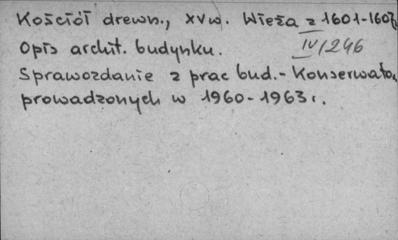 Kościół drewn., XV w. Wieża z 1601-1607
Opis archit. budynku. IV/246
Sprawozdanie z prac bud.-Konserwator,
prowadzonych w 1960-1963 r.